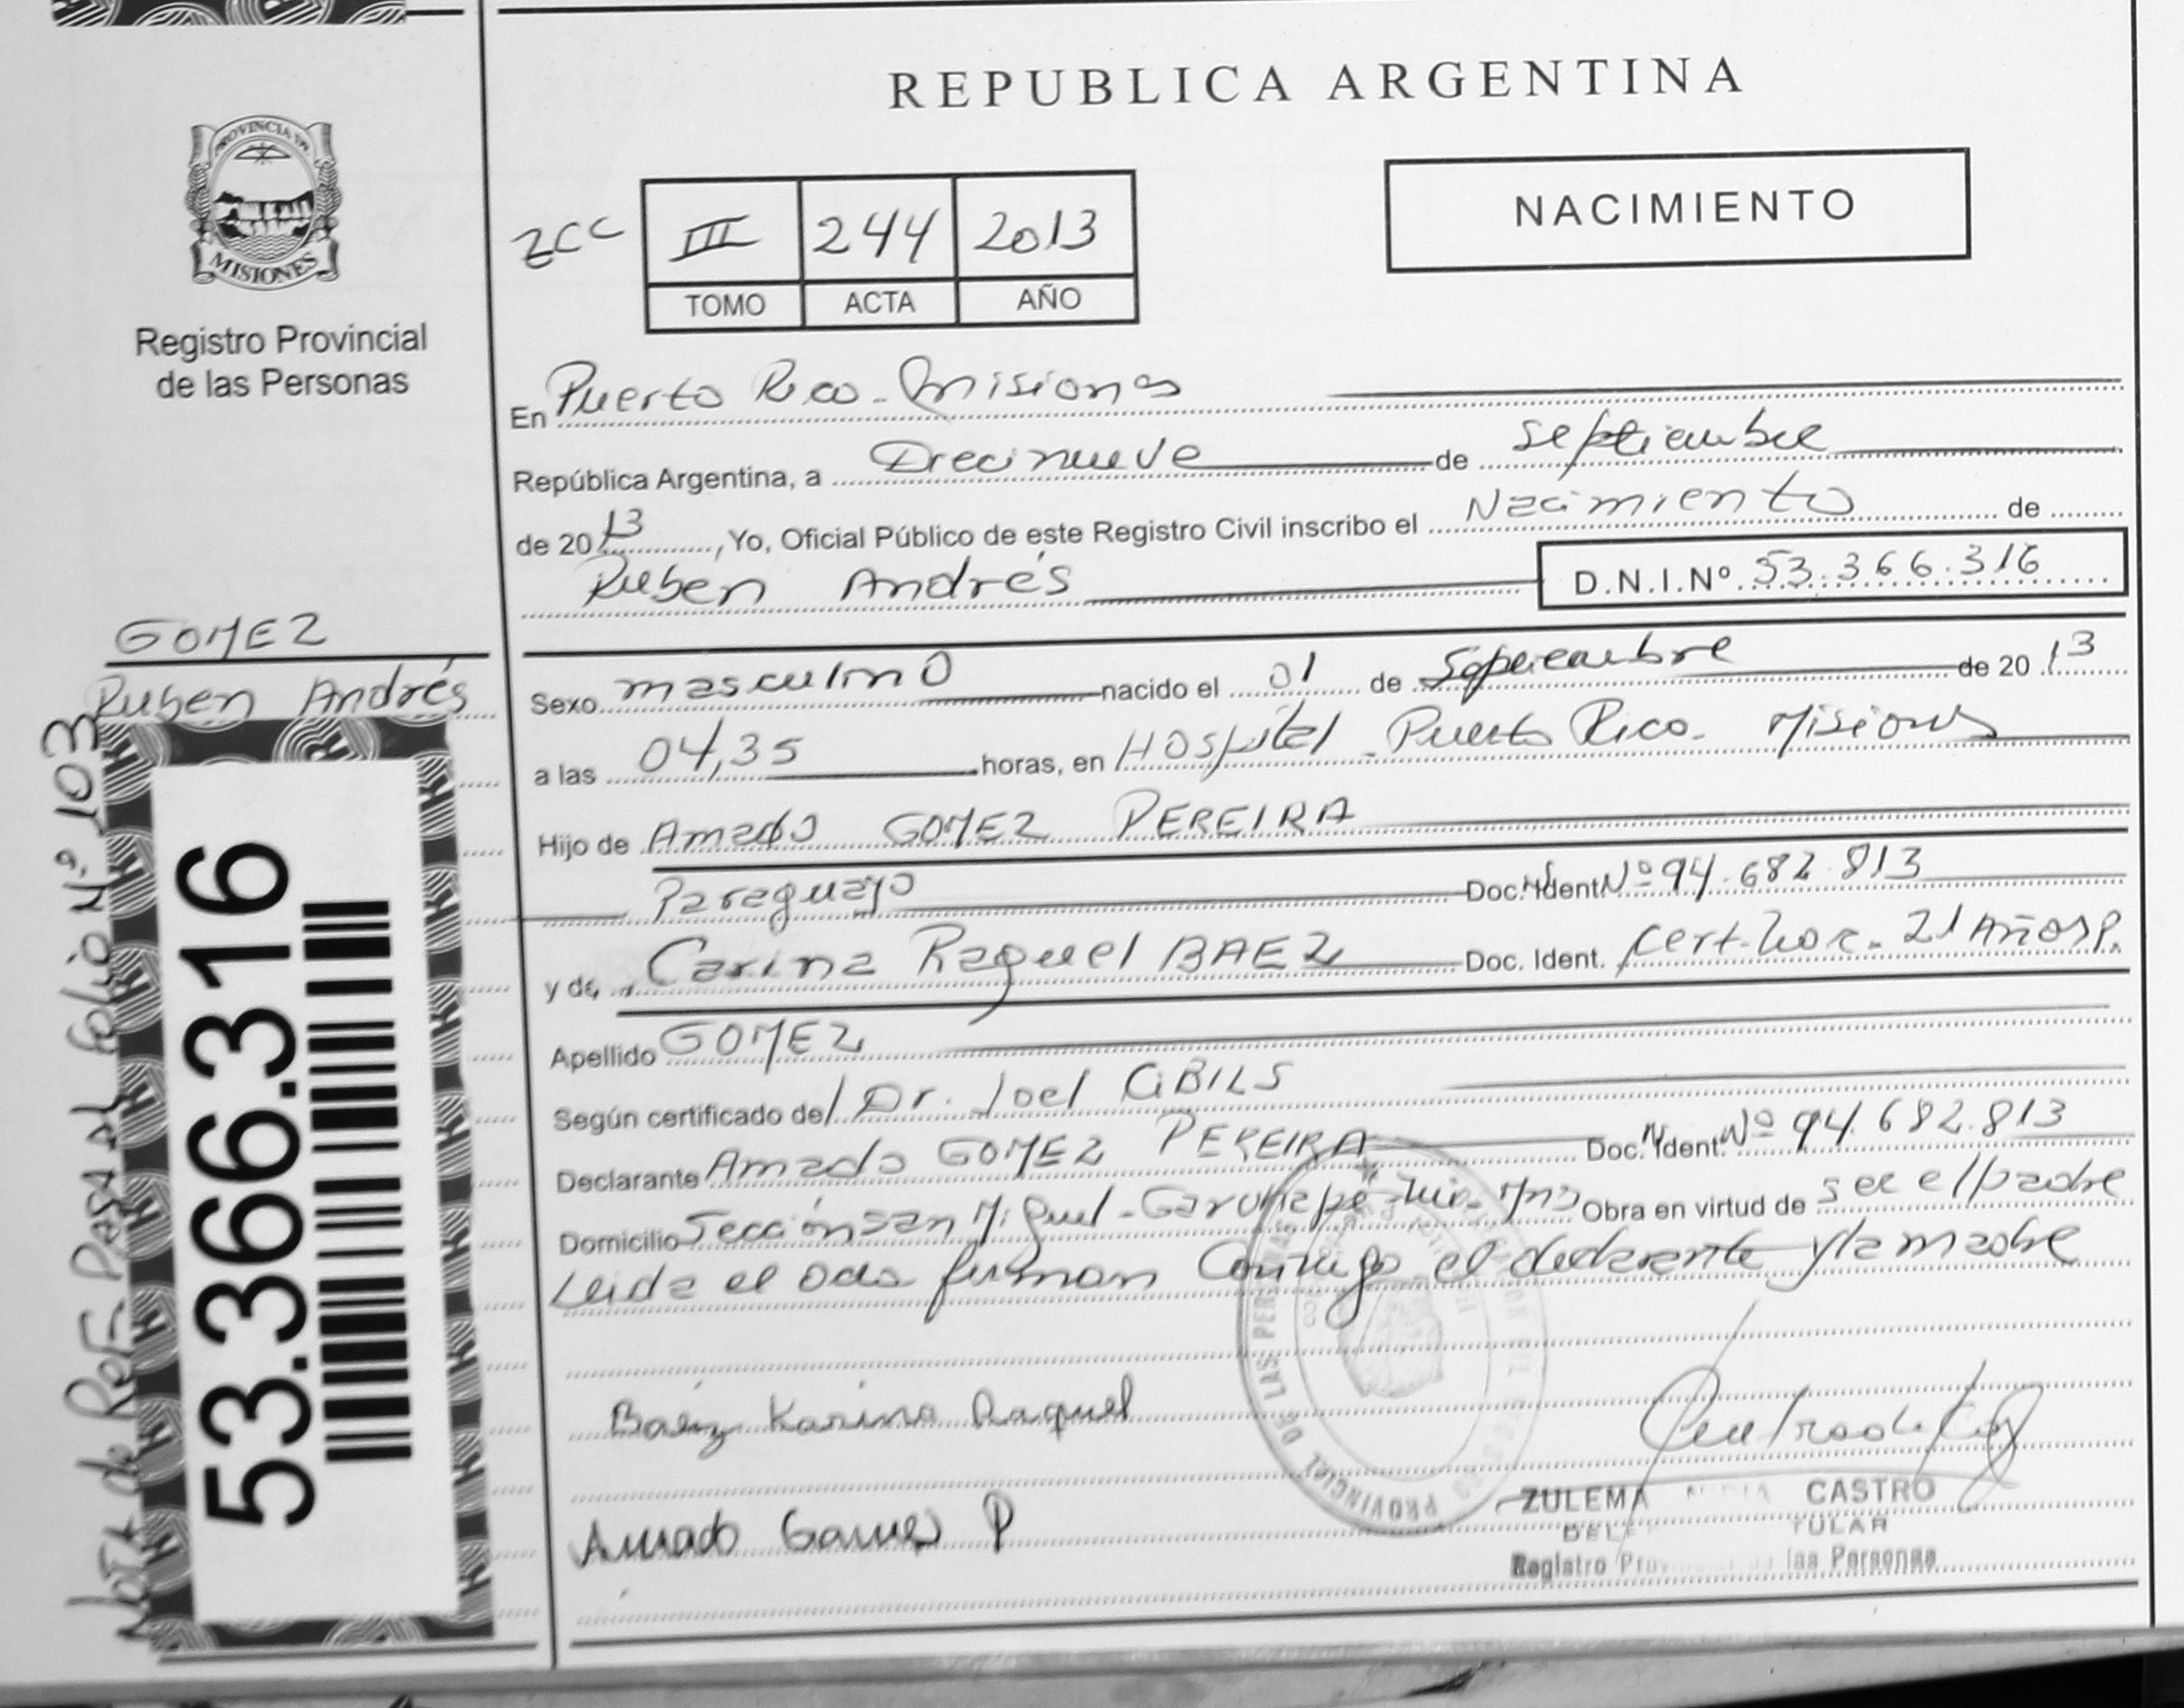 REPUBLICA ARGENTINA
PROVINCIA DE
MISIONES
Registro Provincial
de las Personas
NACIMIENTO
III 244 2013
TOMO ACTA AÑO
En Puerto Rico - Misiones
República Argentina, a Diecinueve de septiembre
de 2013, Yo, Oficial Público de este Registro Civil inscribo el Nacimiento de
Ruben Andrés D.N.I.Nº 53.366.316
GOMEZ
Ruben Andrés
Nota de Ref. Pasa al folio Nº 103
53.366.316
Sexo masculino nacido el 01 de Septiembre de 2013
a las 04,35 horas, en Hospital - Puerto Rico - Misiones
Hijo de Amado GOMEZ PEREIRA
Paraguayo Doc. Ident Nº 94.682.813
y de Carina Raquel BAEZ Doc. Ident. 21 Años P.
Apellido GOMEZ
Según certificado del Dr. Joel CIBILS
Declarante Amado GOMEZ PEREIRA Doc. Ident. Nº 94.682.813
Domicilio Sección San Miguel - Garuhapé - Mns Obra en virtud de ser el padre
Leida el acta firman Conmigo el declarante y la madre
Baéz Karina Raquel
Amado Gomez P
PROVINCIAL DE LAS PERSONAS
ZULEMA CASTRO
Registro las Personas